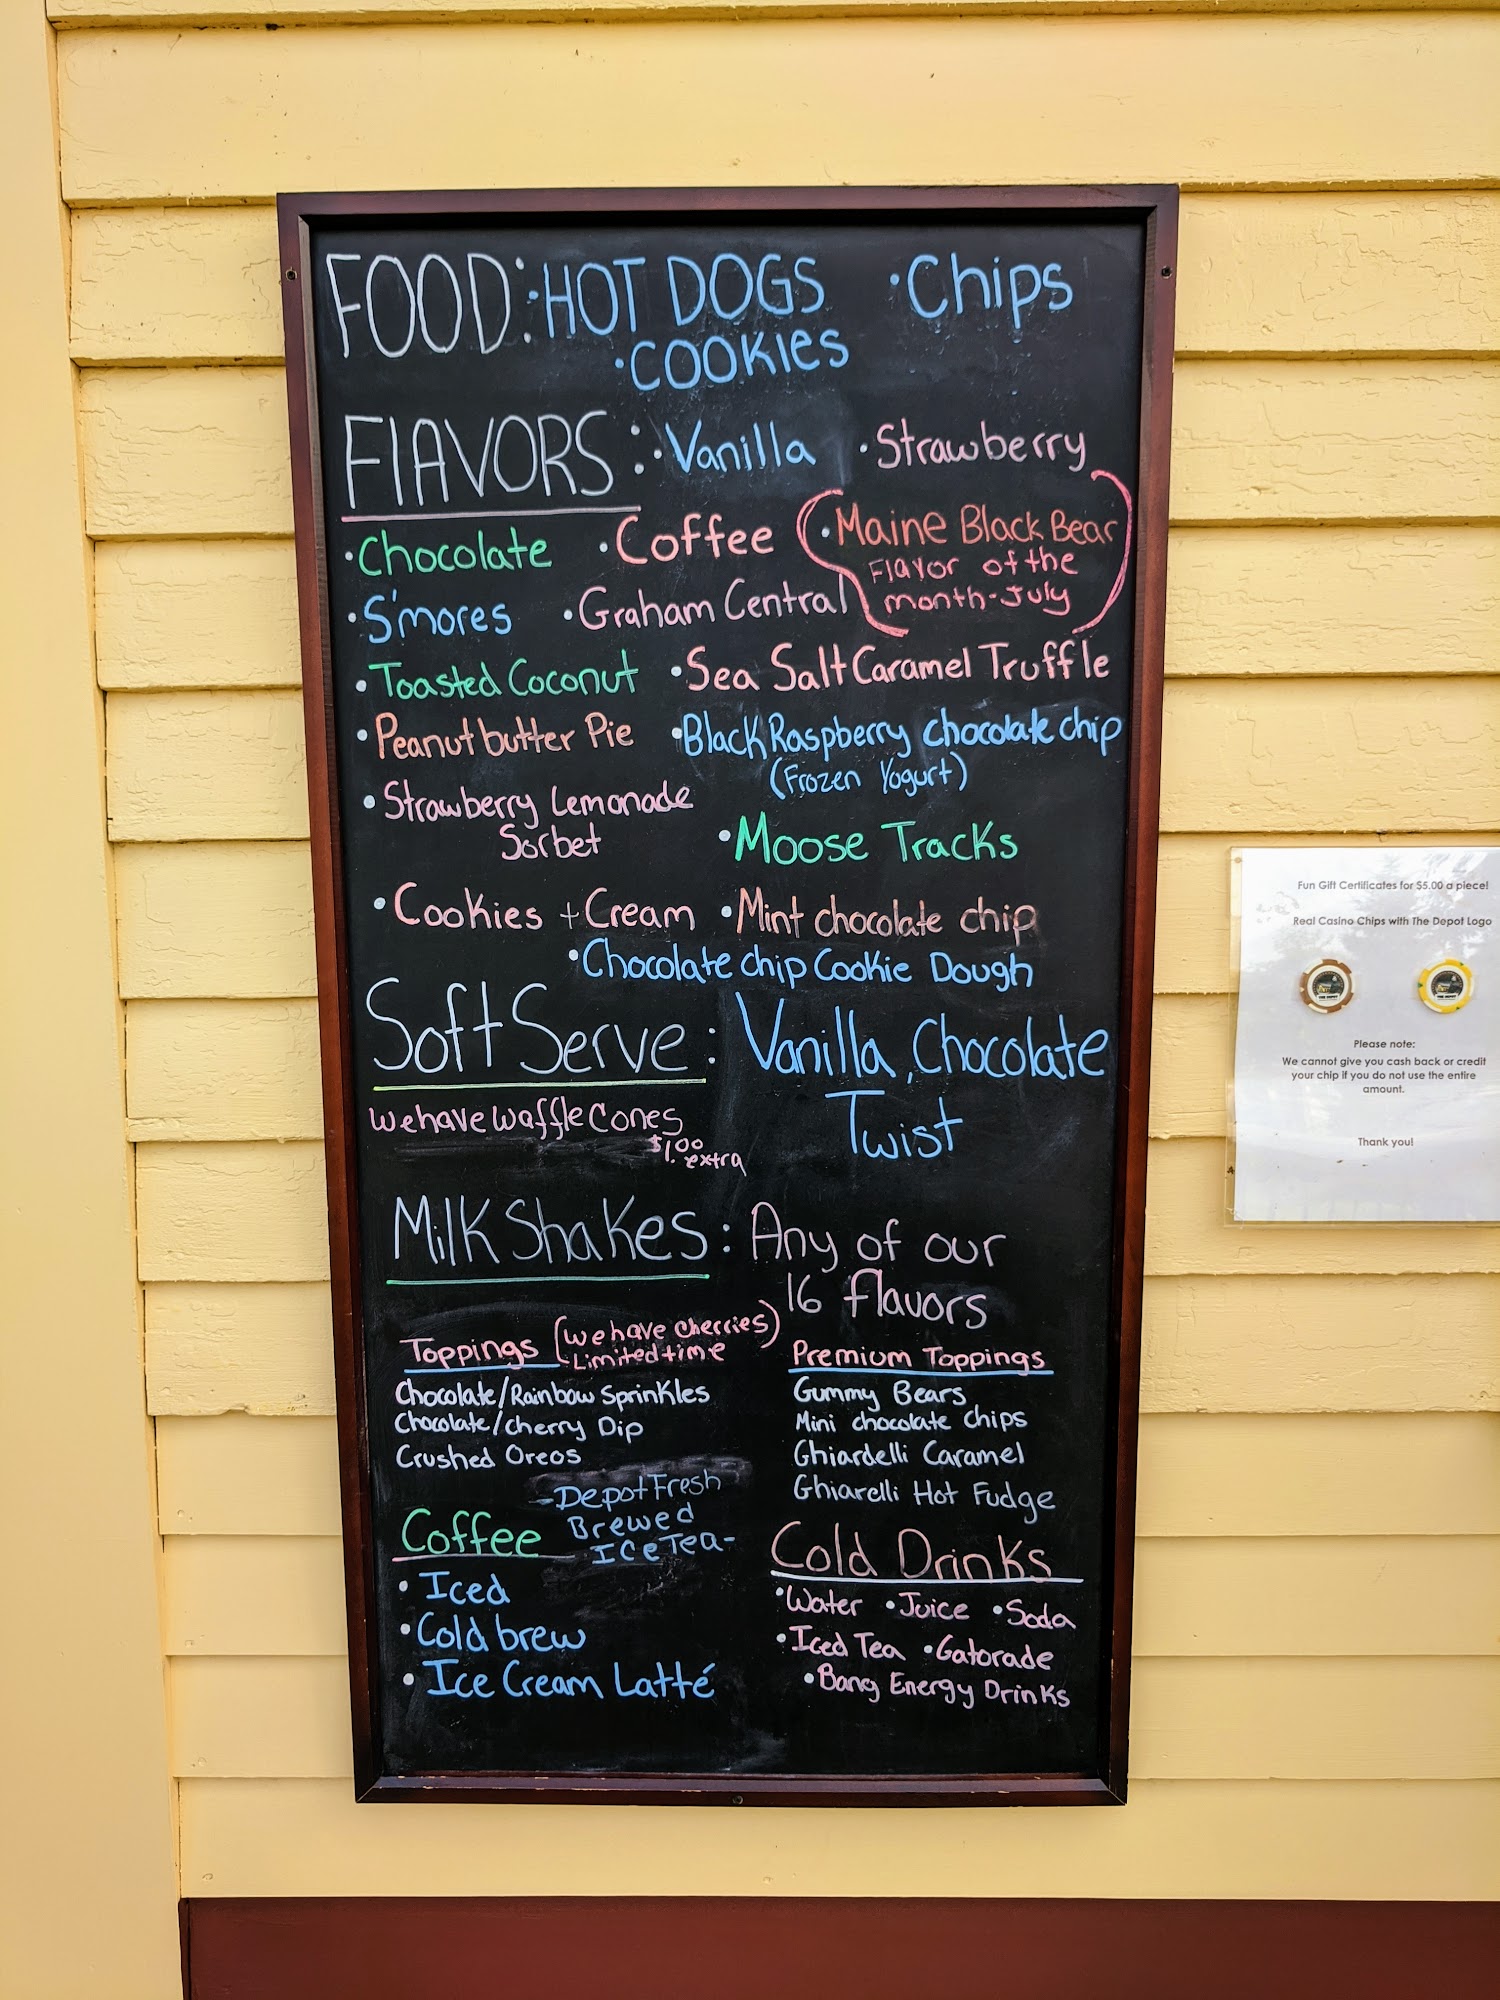 FOOD: ·HOT DOGS ·Chips
·COOKIES
FLAVORS: ·Vanilla ·Strawberry
·Chocolate ·Coffee (·Maine Black Bear
Flavor of the
month-July)
·S'mores ·Graham Central
·Toasted Coconut ·Sea Salt Caramel Truffle
·Peanut butter Pie ·Black Raspberry chocolate chip
(Frozen Yogurt)
·Strawberry Lemonade
Sorbet
·Moose Tracks
·Cookies + Cream ·Mint chocolate chip
·Chocolate chip Cookie Dough
Soft Serve: Vanilla, Chocolate
Twist
we have waffle Cones
$1.00
extra
MilkShakes: Any of our
16 flavors
Toppings (we have cherries)
Limited time
Chocolate/Rainbow Sprinkles
Chocolate/cherry Dip
Crushed Oreos
Premium Toppings
Gummy Bears
Mini chocolate chips
Ghiardelli Caramel
Ghiarelli Hot Fudge
-Depot Fresh
Brewed
ICe Tea-
Coffee
·Iced
·Cold brew
·Ice Cream Latté
Cold Drinks
·Water ·Juice ·Soda
·Iced Tea ·Gatorade
·Bang Energy Drinks
Fun Gift Certificates for $5.00 a piece!
Real Casino Chips with The Depot Logo
THE DEPOT THE DEPOT
Please note:
We cannot give you cash back or credit
your chip if you do not use the entire
amount.
Thank you!